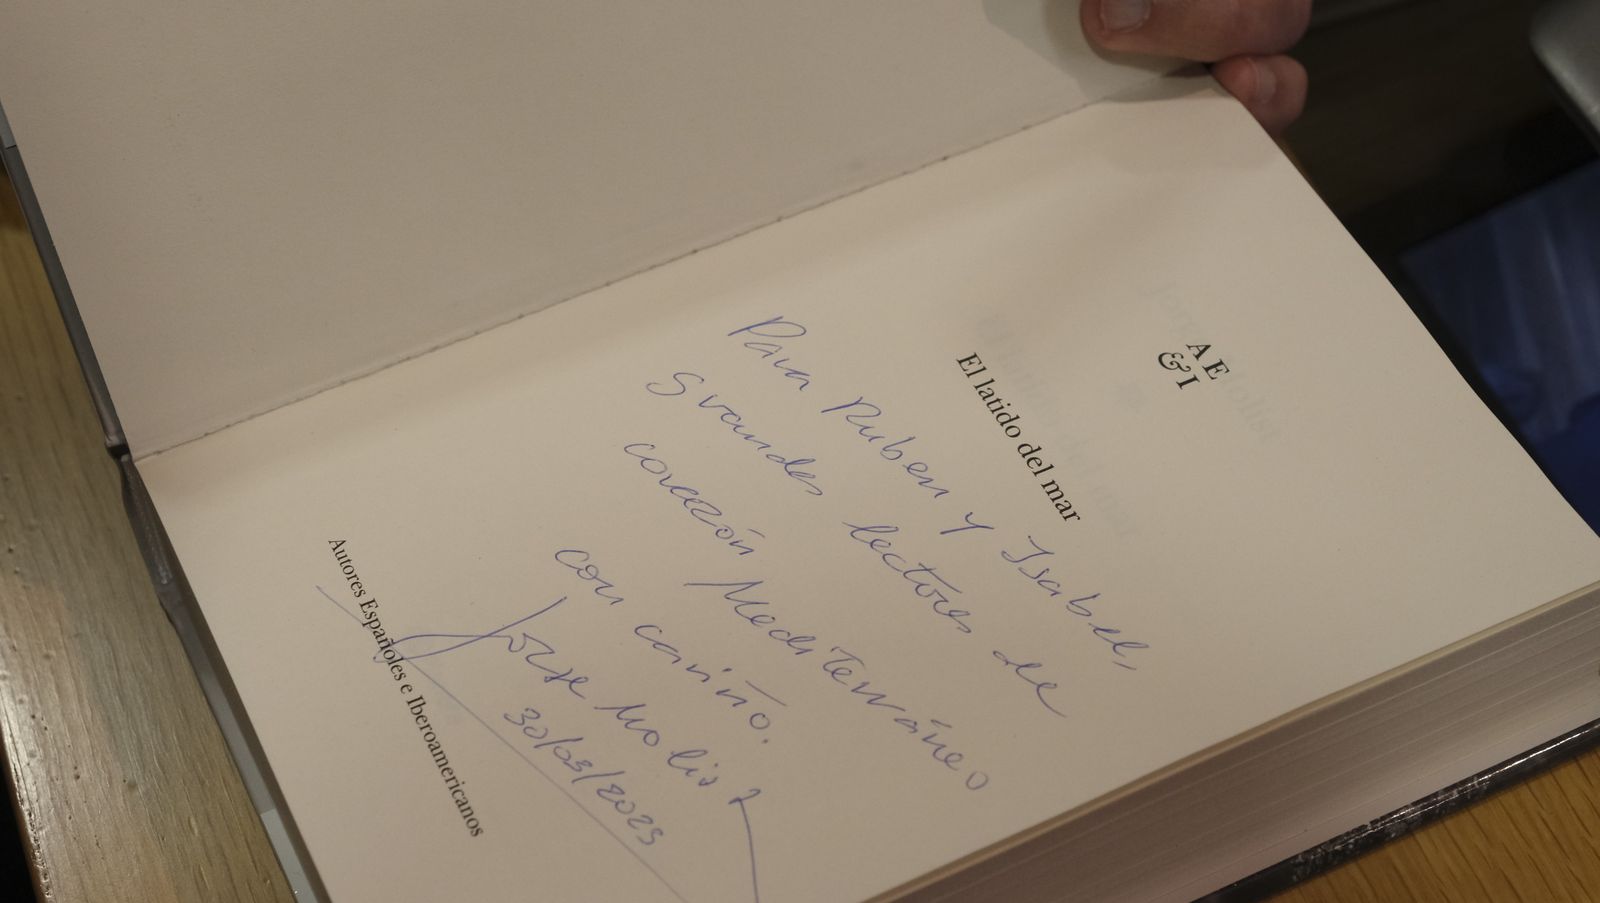 A E
& I
El latido del mar
Para Ruben y Isabel,
grandes lectores de
corazón Mediterráneo
con cariño.
Jorge Molist
30/03/2025
Autores Españoles e Iberoamericanos